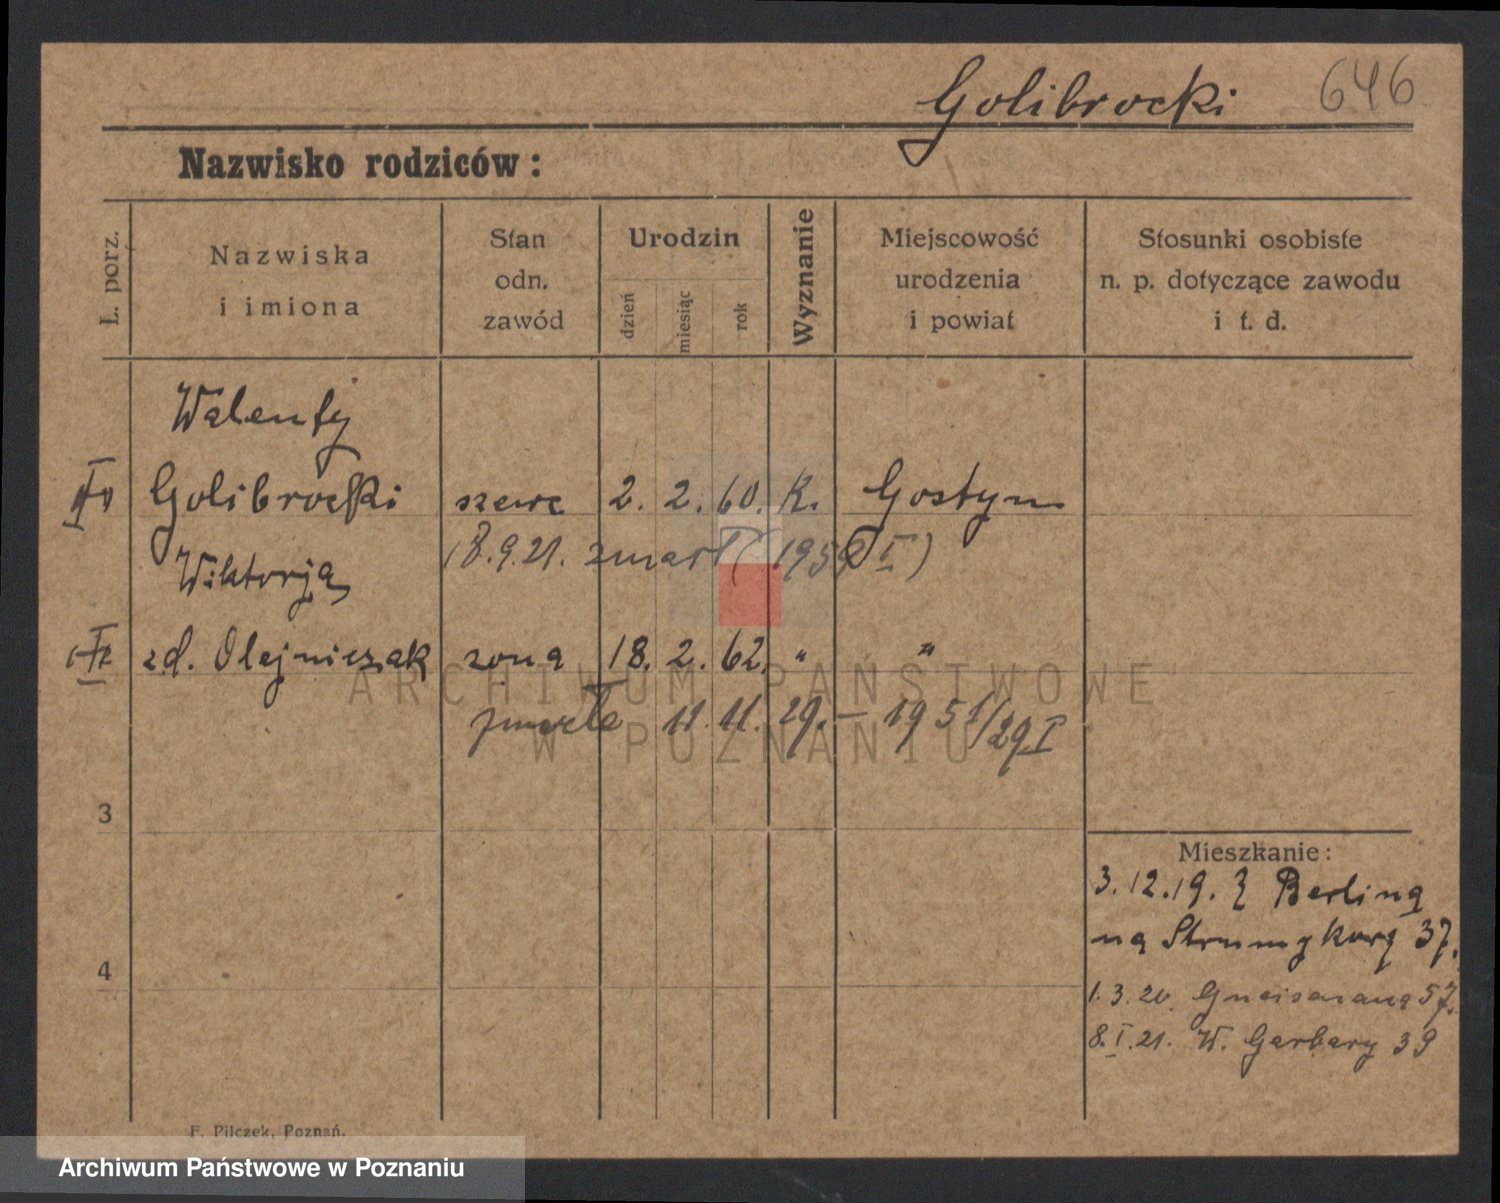 Golibrocki 646
Nazwisko rodziców:
L. porz.
Nazwiska
i imiona
Stan
odn.
zawód
Urodzin
dzień
miesiąc
rok
Wyznanie
Miejscowość
urodzenia
i powiat
Stosunki osobiste
n. p. dotyczące zawodu
i t. d.
Walenty
Golibrocki szewc 2. 2. 60. K. Gostyn
18.9.21.
Wiktorja
zd. Olejniczak żona 18. 2. 62. " "
zmarła 11. 11. 29. –
3
4
Mieszkanie:
3.12.19. Z Berlina
na Strumykową 37.
1.3.20. Gneisenaua 57.
8.I.21. W. Garbary 39
F. Pilczek, Poznań.
ARCHIWUM PAŃSTWOWE
W POZNANIU
Archiwum Państwowe w Poznaniu